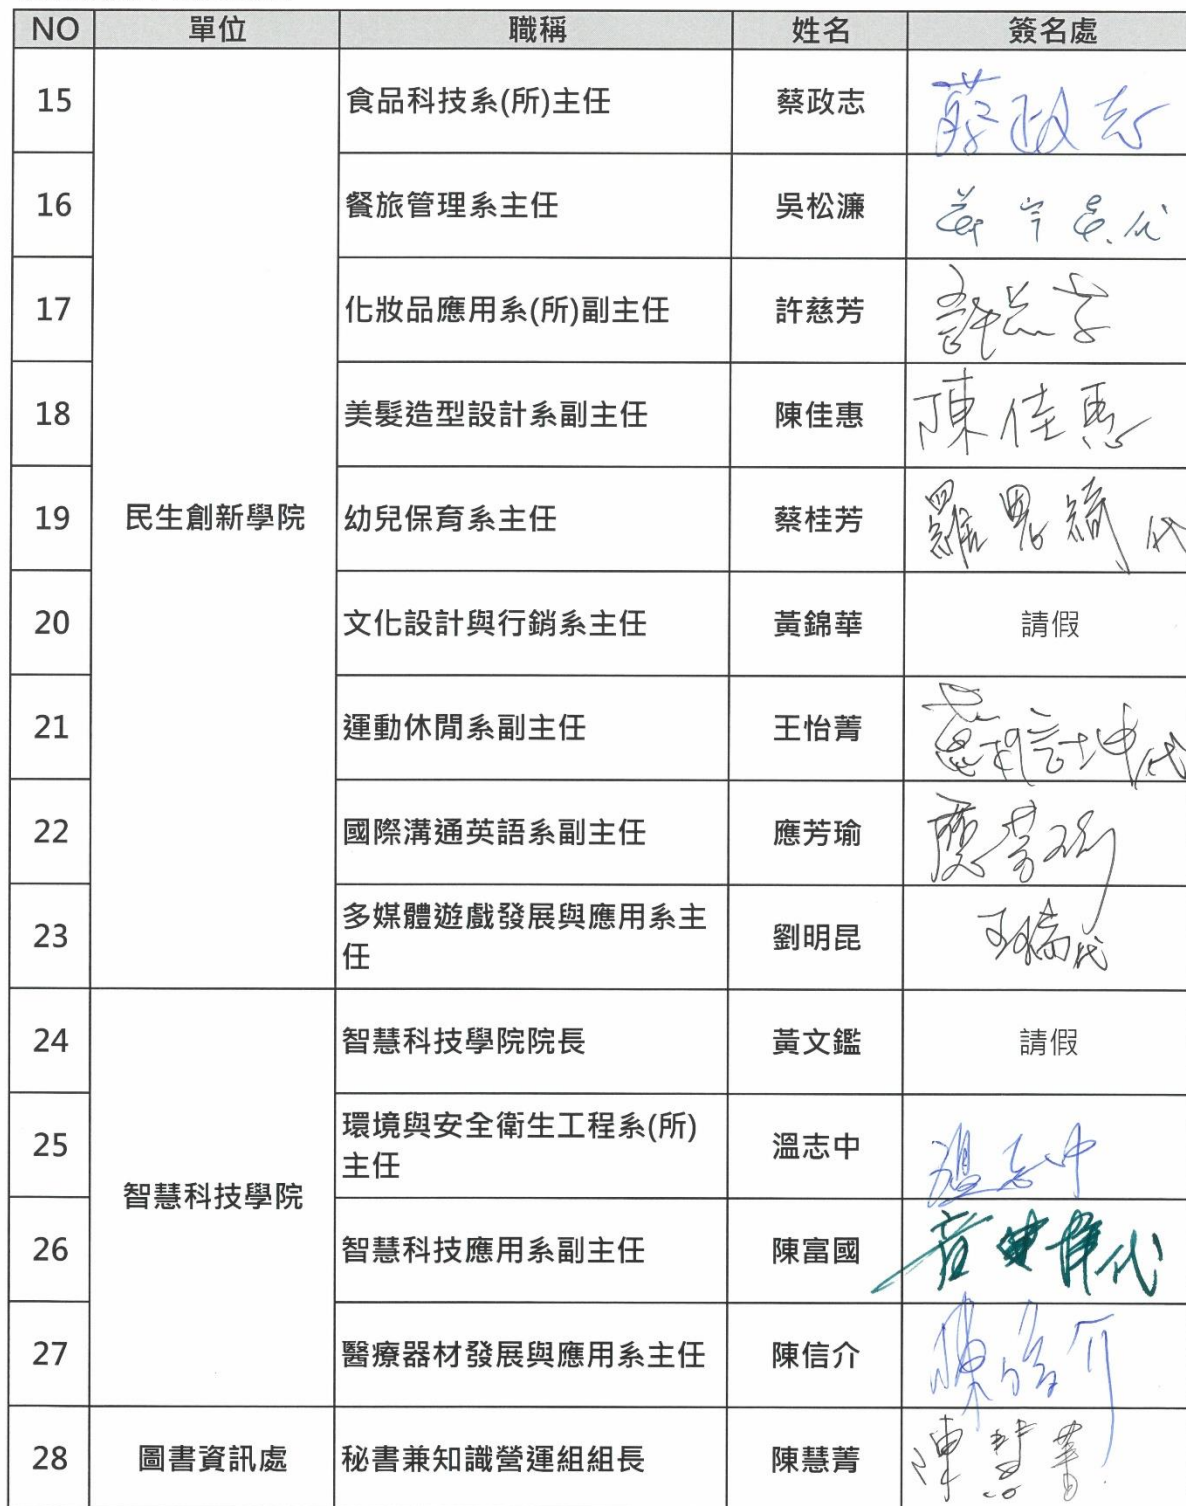 NO 單位 職稱 姓名 簽名處
15 食品科技系(所)主任 蔡政志 蔡政志
16 餐旅管理系主任 吳松濂 代
17 化妝品應用系(所)副主任 許慈芳 許慈芳
18 美髮造型設計系副主任 陳佳惠 陳佳惠
19 民生創新學院 幼兒保育系主任 蔡桂芳 羅 代
20 文化設計與行銷系主任 黃錦華 請假
21 運動休閒系副主任 王怡菁 代
22 國際溝通英語系副主任 應芳瑜 應芳瑜
23 多媒體遊戲發展與應用系主
任 劉明昆 代
24 智慧科技學院院長 黃文鑑 請假
25 環境與安全衛生工程系(所)
主任 溫志中 溫志中
智慧科技學院
26 智慧科技應用系副主任 陳富國 代
27 醫療器材發展與應用系主任 陳信介 陳信介
28 圖書資訊處 秘書兼知識營運組組長 陳慧菁 陳慧菁